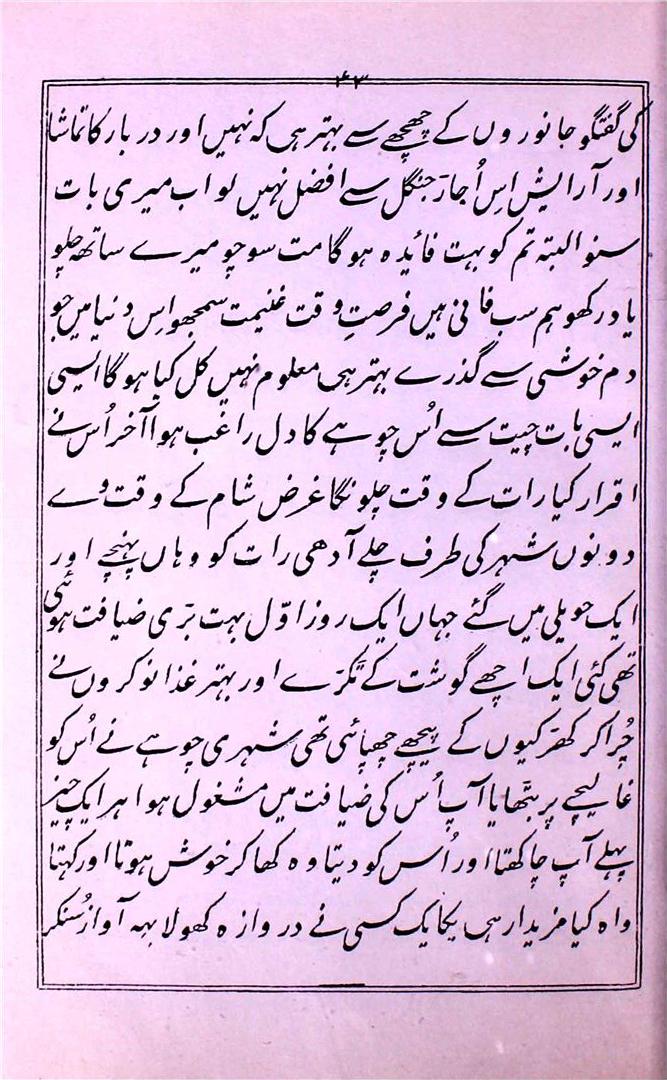 ۴۳
کی گفتگو جانوروں کے چھچھے سے بہتر ہی کہ نہیں اور دربار کا تماشا
اور آرایش اِس اُجار جنگل سے افضل نہیں لو اب میری بات
سنو البتہ تم کو بہت فائدہ ہوگا مت سوچو میرے ساتھہ چلو
یاد رکھو ہم سب فانی ہیں فرصتِ وقت غنیمت سمجھو اِس دنیا میں جو
دم خوشی سے گذرے بہتر ہی معلوم نہیں کل کیا ہوگا ایسی
ایسی بات چیت سے اُس چوہے کا دل راغب ہوا آخر اُس نے
اقرار کیا رات کے وقت چلونگا غرض شام کے وقت وے
دونوں شہر کی طرف چلے آدھی رات کو وہاں پہنچے اور
ایک حویلی میں گئے جہاں ایک روز اوّل بہت بڑی ضیافت ہوئی
تھی کئی ایک اچھے گوشت کے ٹکڑے اور بہتر غذا نوکروں نے
چُراکر کھڑکیوں کے پیچھے چھپائی تھی شہری چوہے نے اُس کو
غالیچے پر بٹھایا آپ اُس کی ضیافت میں مشغول ہوا ہر ایک چیز
پہلے آپ چاکھتا اور اُس کو دیتا وہ کھاکر خوش ہوتا اور کہتا
واہ کیا مزیدار ہی یکایک کسی نے دروازہ کھولا یہہ آواز سُنکر